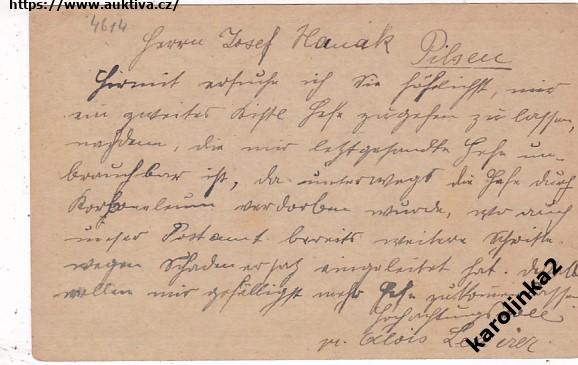 https://www.auktiva.cz/
4614
Herrn Josef Hanak Pilsen
Hiermit ersuche ich Sie höflichst, mir
ein zweites Kistl Hefe zugehen zu lassen,
nachdem, die mir letztgesandte Hefe un-
brauchbar ist, da unterwegs die Hefe durch
verdorben wurde, wo auch
unser Postamt bereits weitere Schritte
wegen Schadenersatz eingeleitet hat.
wollen mir gefälligst mehr Hefe zukommen lassen
Hochachtungsvoll
Alois
karolinka2